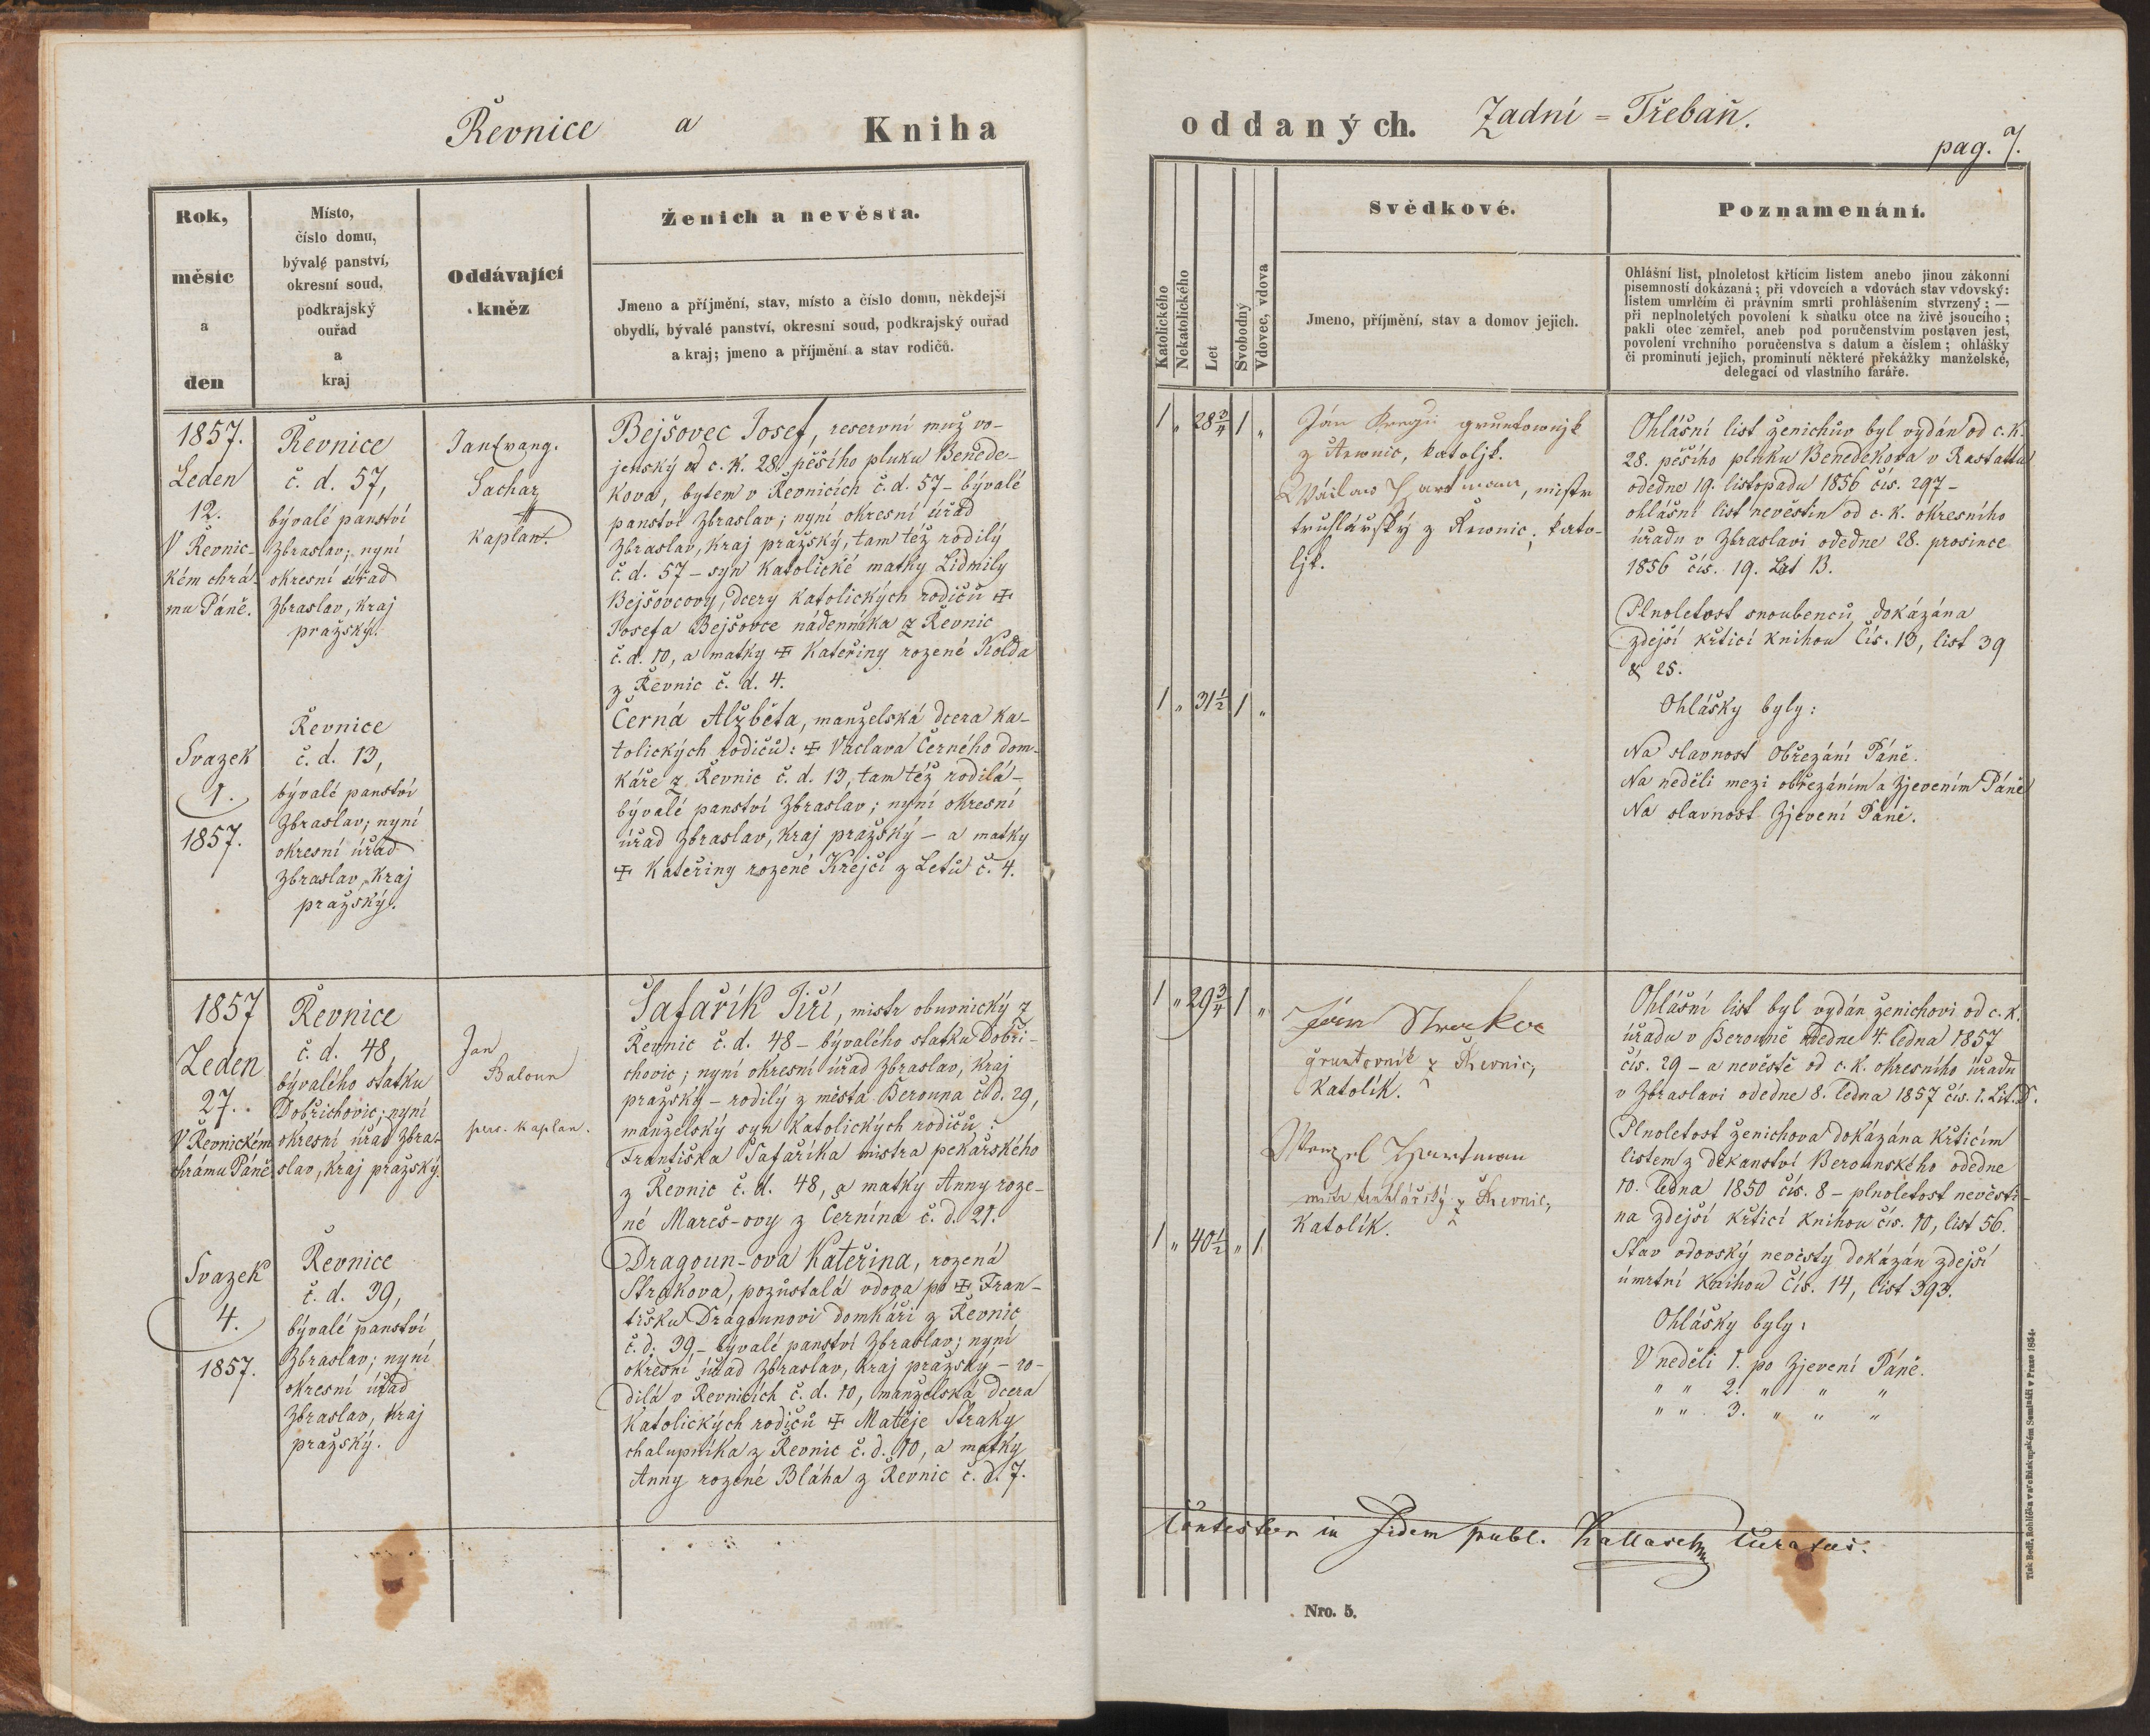 Řevnice a Kniha
oddaných. Zadní = Třebaň.
pag. 7.
Rok,
měsíc
a
den
Místo,
číslo domu,
bývalé panství,
okresní soud,
podkrajský
ouřad
a
kraj
Oddávající
kněz
Ženich a nevěsta.
Jmeno a příjmění, stav, místo a číslo domu, někdejší
obydlí, bývalé panství, okresní soud, podkrajský ouřad
a kraj; jmeno a příjmění a stav rodičů.
Katolického
Nekatolického
Let
Svobodný
Vdovec, vdova
Svědkové.
Jmeno, příjmění, stav a domov jejich.
Poznamenání.
Ohlášní list, plnoletost křticím listem anebo jinou zákonní
písemností dokázaná; při vdovcích a vdovách stav vdovský:
listem umrlčím či právním smrti prohlášením stvrzený; —
při neplnoletých povolení k sňatku otce na živě jsoucího;
pakli otec zemřel, aneb pod poručenstvím postaven jest,
povolení vrchního poručenstva s datum a číslem; ohlášky
či prominutí jejich, prominutí některé překážky manželské,
delegací od vlastního faráře.
1857.
Leden
12.
V Řevnic-
kém chrá-
mu Páně.
Svazek
1.
1857.
Řevnice
č. d. 57,
bývalé panství
Zbraslav; nyní
okresní úřad
Zbraslav, kraj
pražský.
Řevnice
č. d. 13,
bývalé panství
Zbraslav; nyní
okresní úřad
Zbraslav, kraj
pražský.
Jan Evang.
Sachaz
kaplan.
Bejšovec Josef, reservní muž vo-
jenský od c. k. 28. pěšího pluku Benede-
kova, bytem v Řevnicích č. d. 57 – bývalé
panství Zbraslav; nyní okresní úřad
Zbraslav, kraj pražský, tam též rodilý
č. d. 57 – syn katolické matky Lidmily
Bejšovcovy, dcery katolických rodičů ✠
Josefa Bejšovce nádenníka z Řevnic
č. d. 10, a matky ✠ Kateřiny rozené Kolda
z Řevnic č. d. 4.
Černá Alžběta, manželská dcera ka-
tolických rodičů: ✠ Václava Černého dom-
káře z Řevnic č. d. 13, tam též rodilá –
bývalé panství Zbraslav; nyní okresní
úřad Zbraslav, kraj pražský – a matky
✠ Kateřiny rozené Krejčí z Letů č. 4.
1 „ 28 3/4 1 „
1 „ 31 1/2 1 „
Ján gruntownjk
z Řewnic, katoljk.
Wáclaw Hartman, mistr
truhlářský z Řewnic, kato-
ljk.
Ohlášní list ženichův byl vydán od c. k.
28. pěšího pluku Benedekova v Rastattu
odedne 19. listopadu 1856 čís. 297 –
ohlášní list nevěstin od c. k. okresního
úřadu v Zbraslavi odedne 28. prosince
1856 čís. 19. Lit B.
Plnoletost snoubenců dokázána
zdejší křticí knihou čís. 13, list 39
& 25.
Ohlášky byly:
Na slavnost Obřezání Páně.
Na neděli mezi obřezáním a Zjevením Páně
Na slavnost Zjevení Páně.
1857
Leden
27.
V Řevnickém
chrámu Páně.
Svazek
4.
1857.
Řevnice
č. d. 48,
bývalého statku
Dobřichovic; nyní
okresní úřad Zbra-
slav, kraj pražský.
Řevnice
č. d. 39,
bývalé panství
Zbraslav; nyní
okresní úřad
Zbraslav, kraj
pražský.
Jan
Baloun
kaplan.
Šafařík Jiří, mistr obuvnický z
Řevnic č. d. 48 – bývalého statku Dobři-
chovic; nyní okresní úřad Zbraslav, kraj
pražský – rodilý z města Berouna č. d. 29,
manželský syn katolických rodičů:
Františka Šafaříka mistra pekařského
z Řevnic č. d. 48, a matky Anny roze-
né Mareš-ovy z Černína č. d. 21.
Dragoun-ova Kateřina, rozená
Strakova, pozůstalá vdova po ✠ Fran-
tišku Dragounovi domkáři z Řevnic
č. d. 39, – bývalé panství Zbraslav; nyní
okresní úřad Zbraslav, kraj pražský – ro-
dilá v Řevnicích č. d. 10, manželská dcera
katolických rodičů ✠ Matěje Straky
chalupníka z Řevnic č. d. 10, a matky
Anny rozené Bláha z Řevnic č. d. 7.
1 „ 29 3/4 1 „
1 „ 40 1/2 „ 1
Ján Straka
gruntovník z Řevnic,
katolík.
Wenzel Hartman
mistr truhlářský z Řevnic,
katolík.
Ohlášní list byl vydán ženichovi od c. k.
úřadu v Berouně odedne 4. ledna 1857
čís. 29 – a nevěstě od c. k. okresního úřadu
v Zbraslavi odedne 8. ledna 1857 čís. 1. Lit. D.
Plnoletost ženichova dokázána křticím
listem z děkanství Berounského odedne
10. ledna 1850 čís. 8 – plnoletost nevěsti-
na zdejší křticí knihou čís. 10, list 56.
Stav vdovský nevěsty dokázán zdejší
úmrtní knihou čís. 14, list 393.
Ohlášky byly:
V neděli 1. po Zjevení Páně.
„ „ 2. „ „ „
„ „ 3. „ „ „
Contestor in fidem publ. Kallasch Curatus.
Nro. 5.
Tisk Bedř. Rohlíčka v arcibiskupském Semináři v Praze 1854.